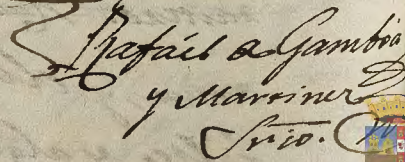 Rafaél de Gamboa
y Martinez
Srio.